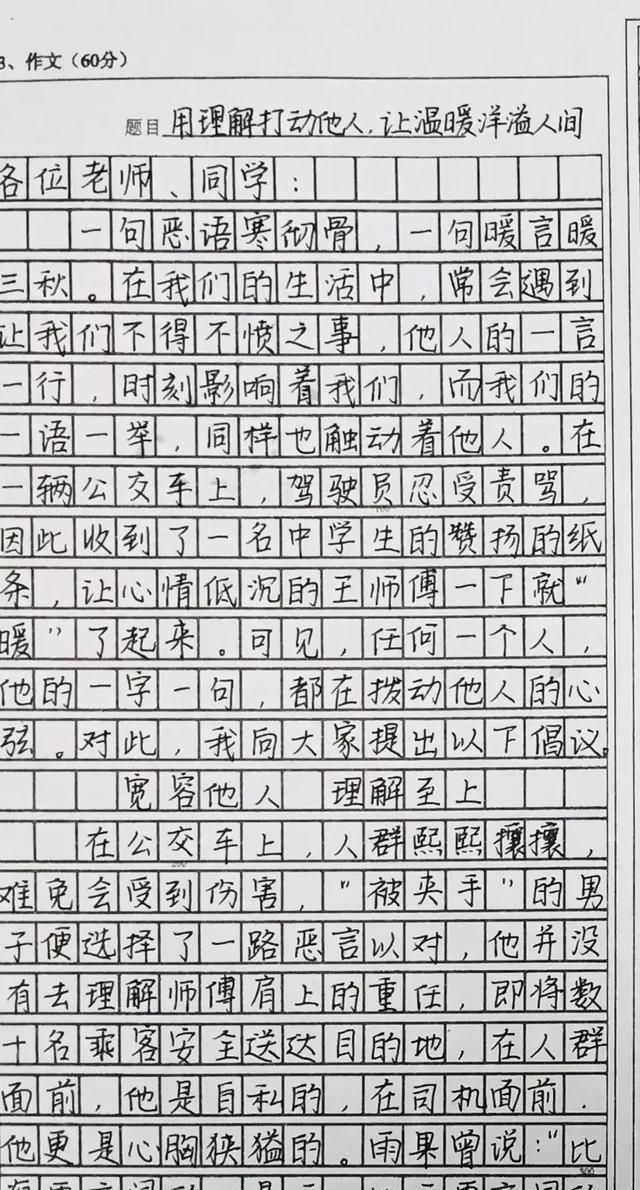 3、作文（60分）
题目 用理解打动他人，让温暖洋溢人间
各位老师、同学：
一句恶语寒彻骨，一句暖言暖
三秋。在我们的生活中，常会遇到
让我们不得不愤之事，他人的一言
一行，时刻影响着我们，而我们的
一语一举，同样也触动着他人。在
一辆公交车上，驾驶员忍受责骂，
因此收到了一名中学生的赞扬的纸
条，让心情低沉的王师傅一下就“
暖”了起来。可见，任何一个人，
他的一字一句，都在拨动他人的心
弦。对此，我向大家提出以下倡议。
宽容他人 理解至上
在公交车上，人群熙熙攘攘，
难免会受到伤害，“被夹手”的男
子便选择了一路恶言以对，他并没
有去理解师傅肩上的重任，即将数
十名乘客安全送达目的地，在人群
面前，他是自私的，在司机面前，
他更是心胸狭猛的。雨果曾说：“比